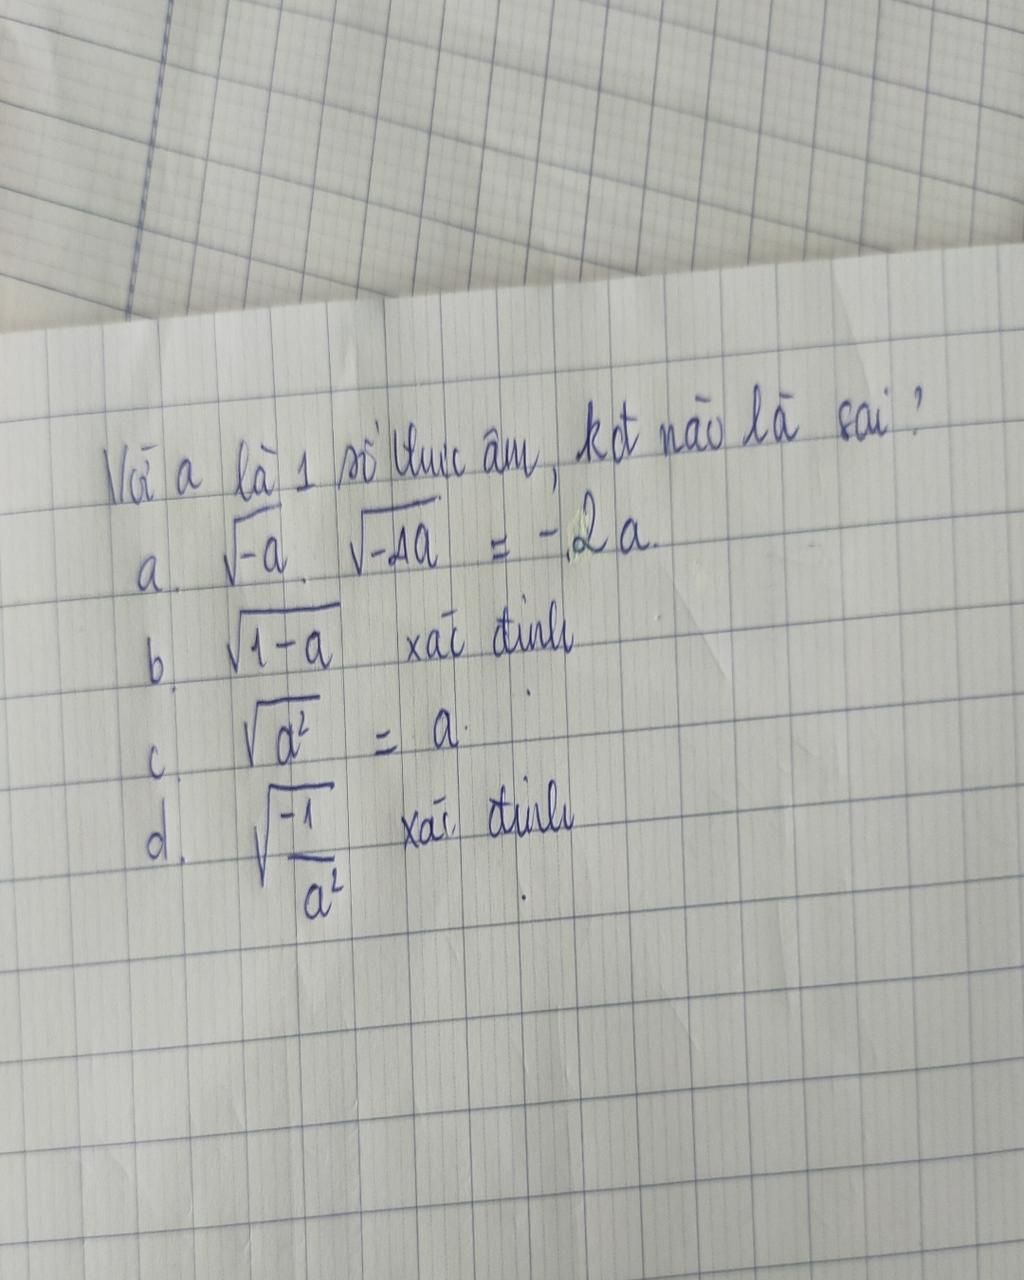 Với a là 1 số thực âm, kđ nào là sai?
a. √-a . √-4a = -2a.
b. √1-a xác định
c. √a² = a.
d. √-1/a² xác định